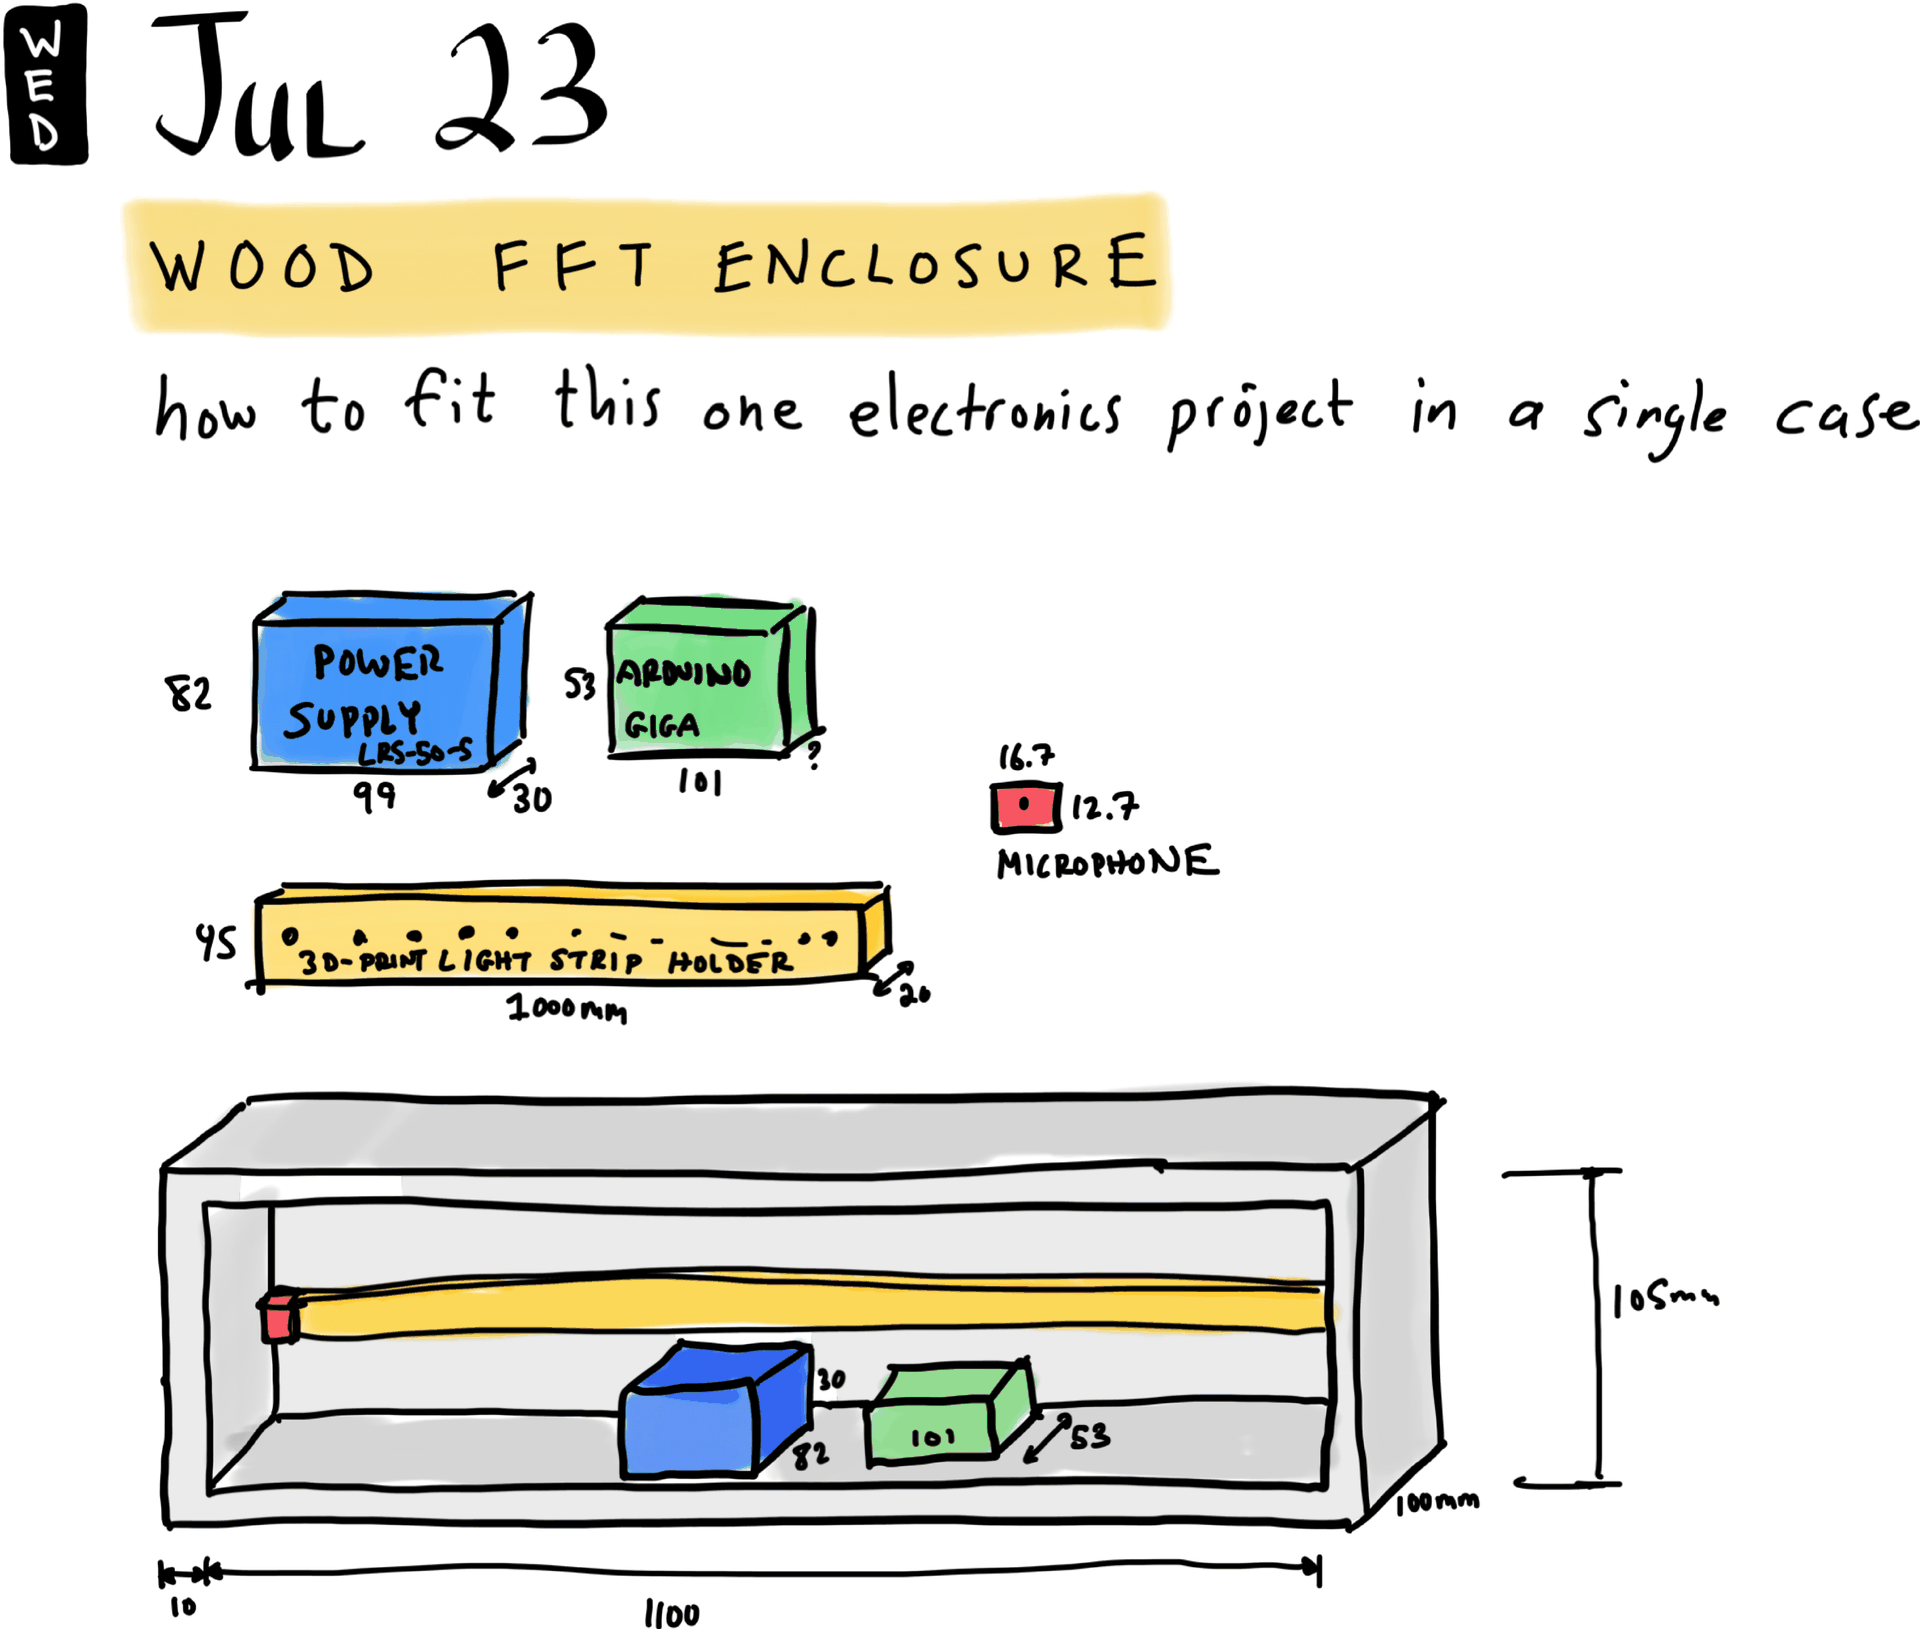 WED
JUL 23
WOOD FFT ENCLOSURE
how to fit this one electronics project in a single case
POWER
SUPPLY
LRS-50-5
82
99
30
ARDUINO
GIGA
53
101
?
16.7
12.7
MICROPHONE
45
3D-PRINT LIGHT STRIP HOLDER
1000mm
20
30
82
101
53
105mm
100mm
10
1100